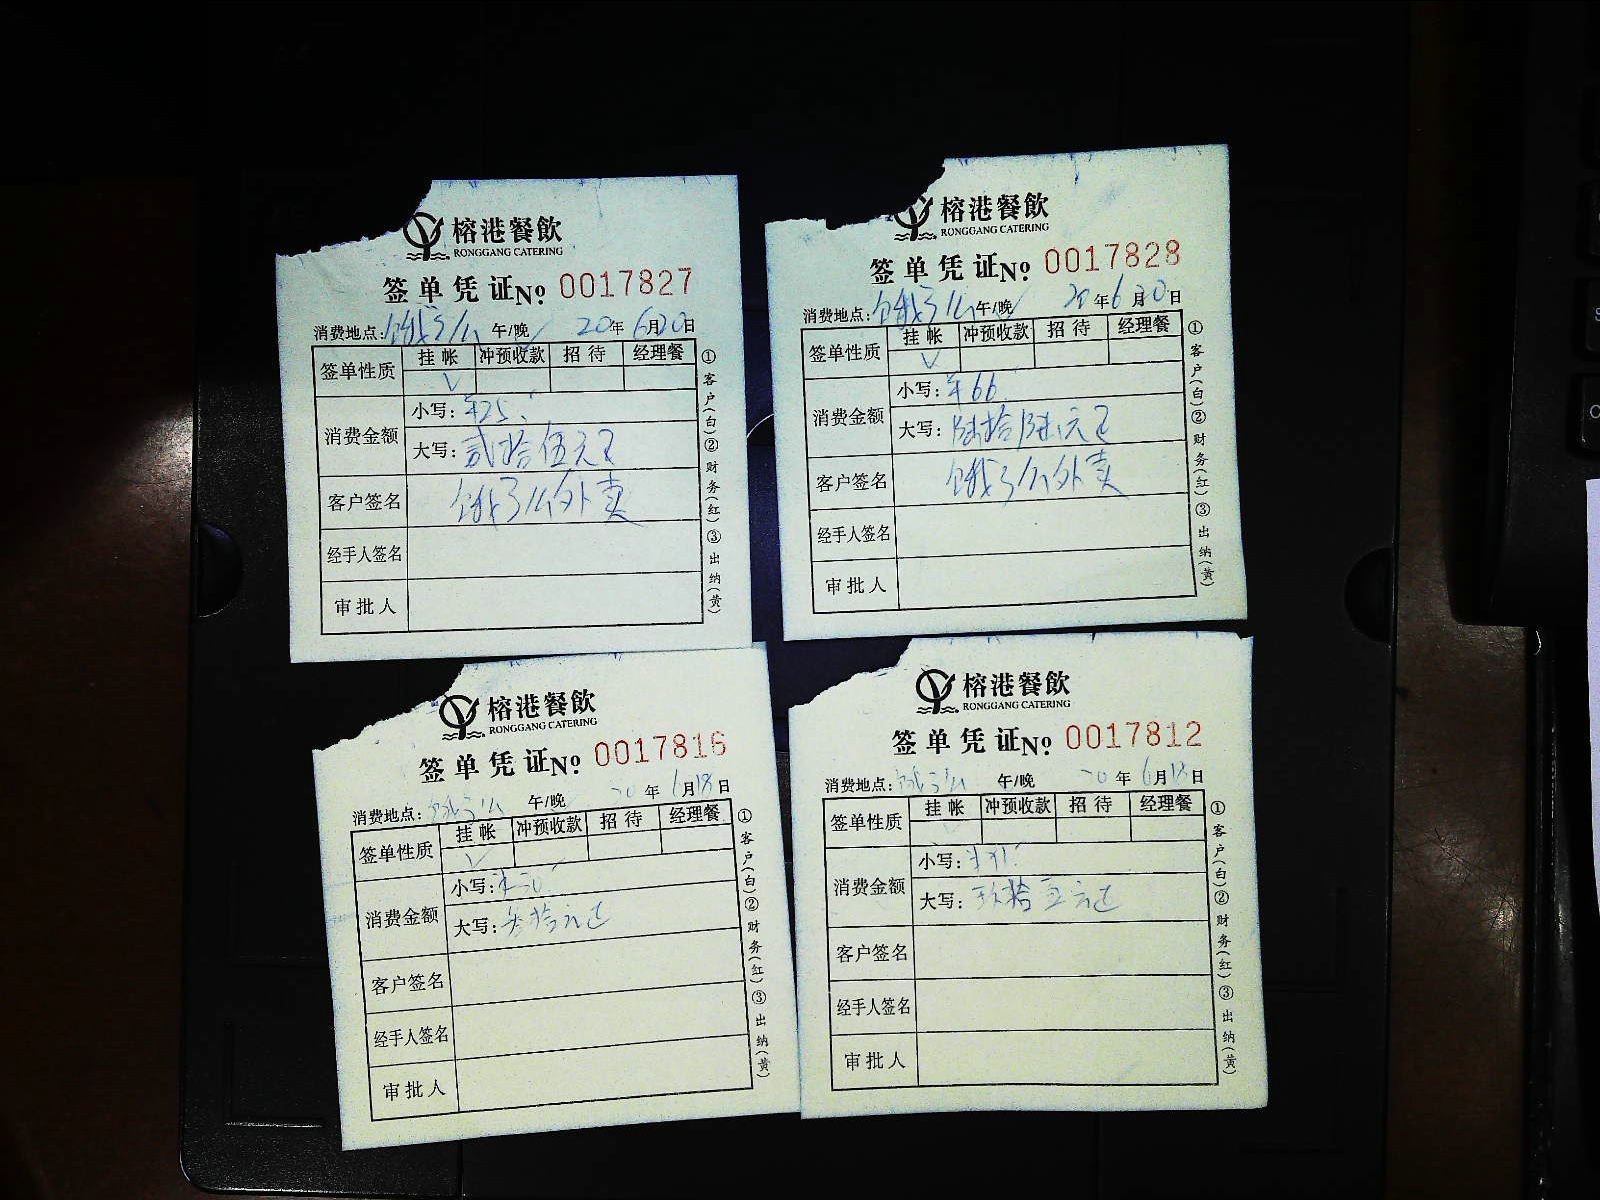 榕港餐飲
RONGGANG CATERING
签单凭证No 0017827
消费地点:饿了么 午/晚 20年6月20日
签单性质 挂帐 冲预收款 招待 经理餐
消费金额 小写:¥25
大写:贰拾伍元正
客户签名 饿了么外卖
经手人签名
审批人
①客户(白)②财务(红)③出纳(黄)
榕港餐飲
RONGGANG CATERING
签单凭证No 0017828
消费地点:饿了么 午/晚 20年6月20日
签单性质 挂帐 冲预收款 招待 经理餐
消费金额 小写:¥66
大写:陆拾陆元正
客户签名 饿了么外卖
经手人签名
审批人
①客户(白)②财务(红)③出纳(黄)
榕港餐飲
RONGGANG CATERING
签单凭证No 0017816
消费地点:饿了么 午/晚 20年6月18日
签单性质 挂帐 冲预收款 招待 经理餐
消费金额 小写:
大写:拾元正
客户签名
经手人签名
审批人
①客户(白)②财务(红)③出纳(黄)
榕港餐飲
RONGGANG CATERING
签单凭证No 0017812
消费地点:饿了么 午/晚 20年6月18日
签单性质 挂帐 冲预收款 招待 经理餐
消费金额 小写:
大写:玖拾五元正
客户签名
经手人签名
审批人
①客户(白)②财务(红)③出纳(黄)